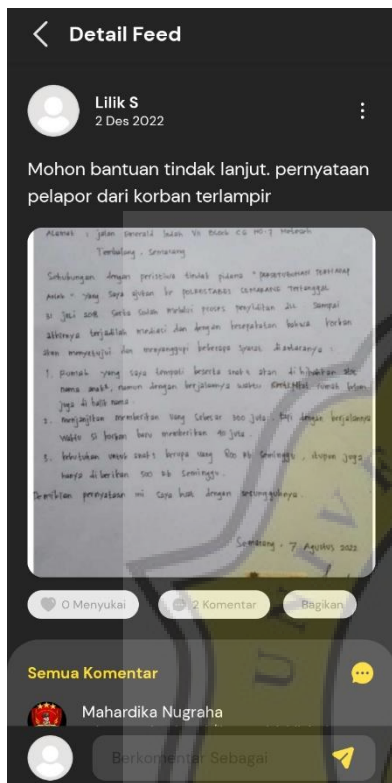 Detail Feed
Lilik S
2 Des 2022
Mohon bantuan tindak lanjut. pernyataan
pelapor dari korban terlampir
Alamat : jalan Emerald Indah
Tembalang, Semarang
Sehubungan dengan peristiwa tindak pidana "
Anak" yang saya ajukan ke POLRESTABES SEMARANG tertanggal
31 2018 serta sudah melalui proses penyidikan dll. Sampai
akhirnya terjadilah mediasi dan dengan kesepakatan bahwa korban
akan menyetujui dan menyanggupi beberapa syarat diantaranya :
1. Rumah yang saya tempati beserta anak2 akan di
nama anak2, namun dengan berjalannya waktu rumah belum
juga di balik nama.
2. Menjanjikan memberikan uang sebesar 300 juta, tapi dengan berjalannya
waktu si korban baru memberikan 90 juta.
3. kebutuhan untuk anak2 berupa uang 800 rb seminggu, itupun juga
hanya diberikan 500 rb seminggu.
Demikian pernyataan ini saya buat dengan sesungguhnya.
Semarang, 7 Agustus 2022
0 Menyukai
2 Komentar
Bagikan
Semua Komentar
Mahardika Nugraha
Berkomentar Sebagai
UNIVE